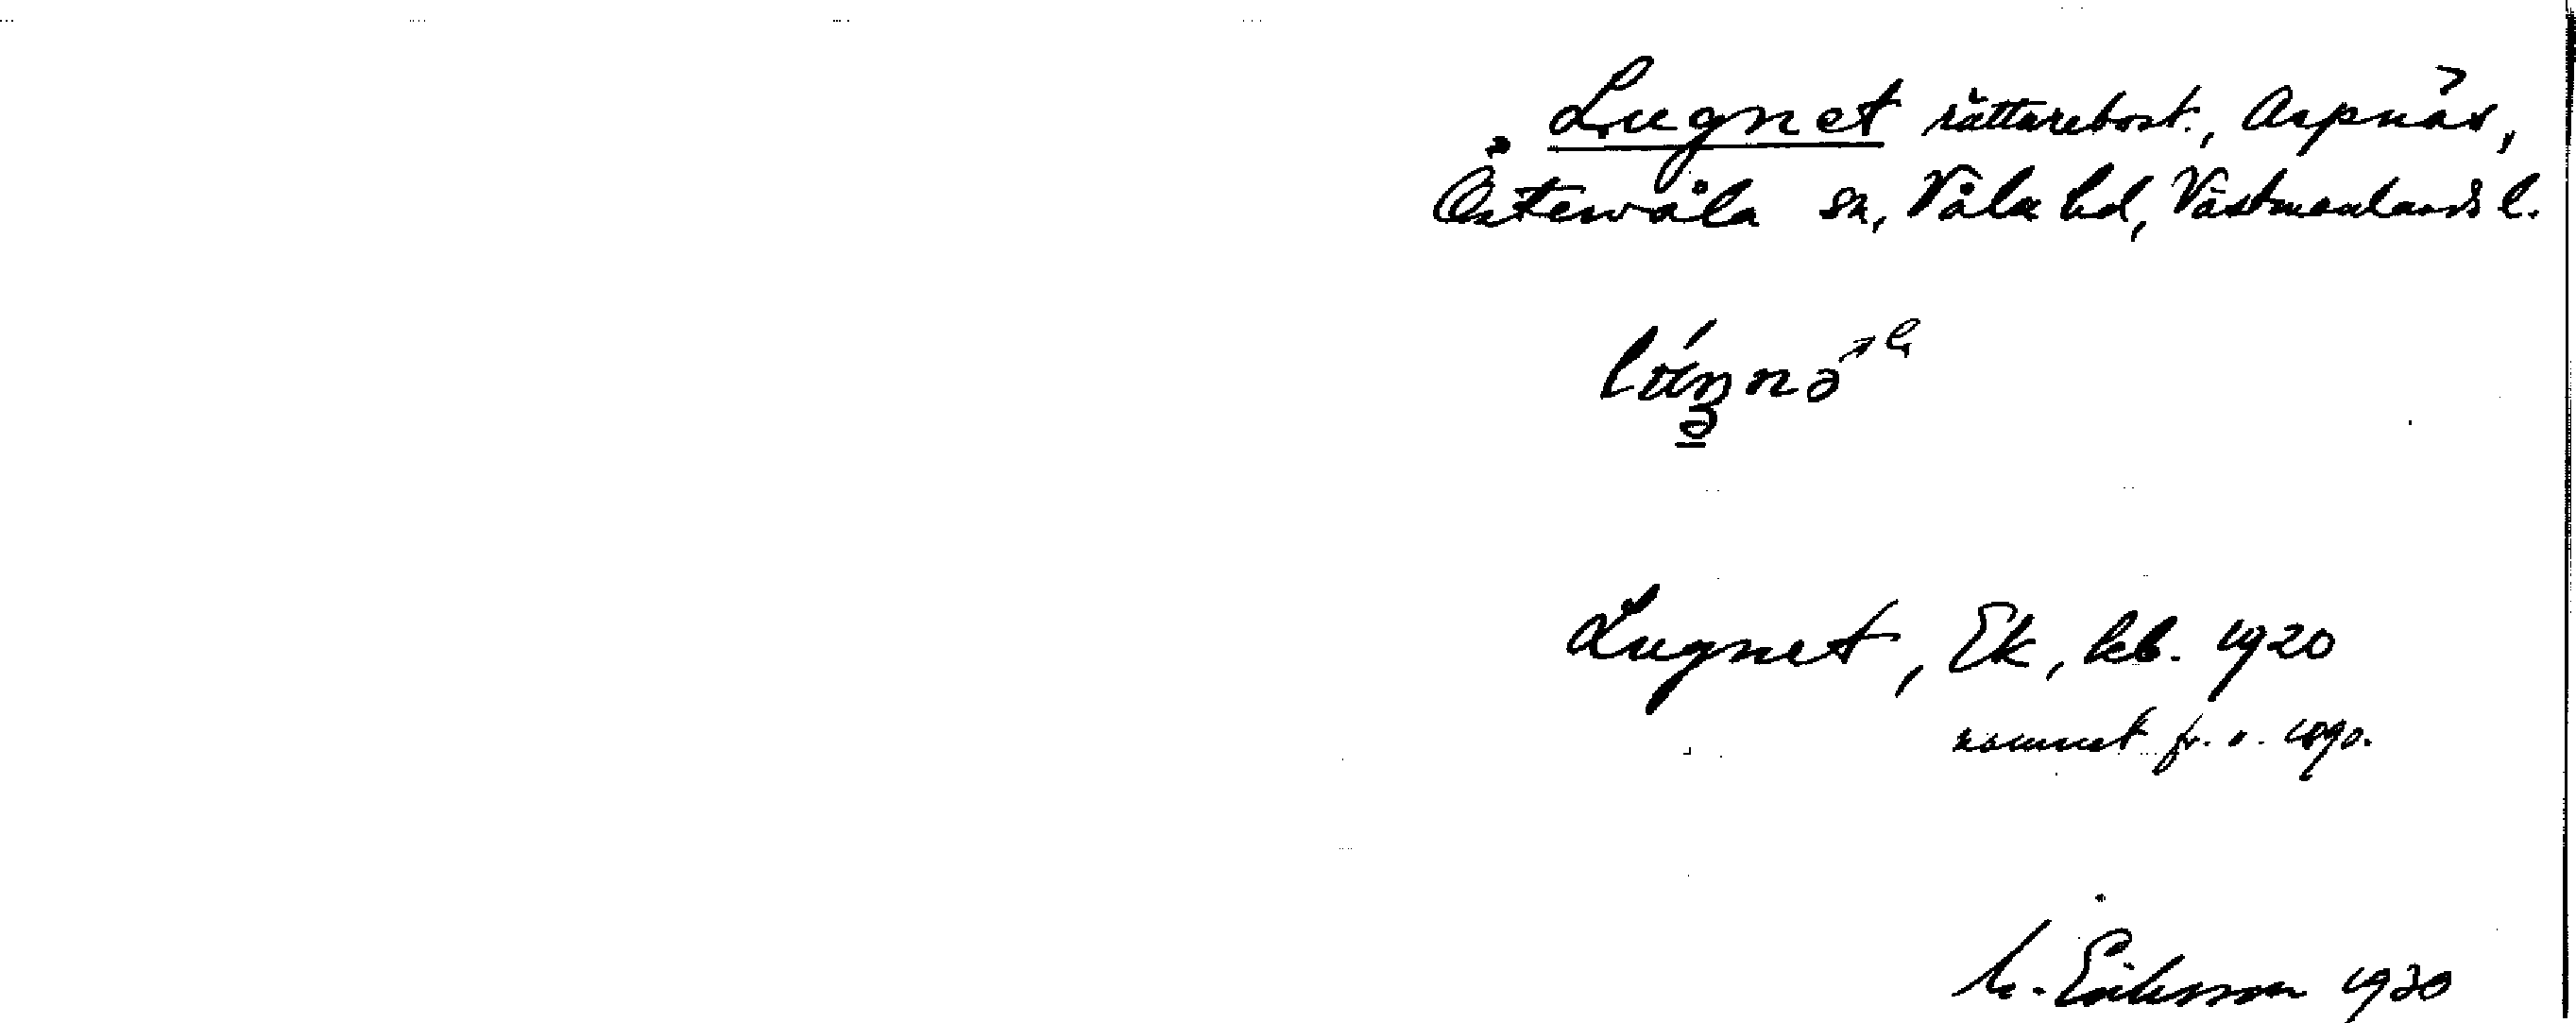 Lugnet rättarebost., Aspnäs,
Östervåla sn, Våla hd, Västmanlands l.
Lugnet, Ek, kb. 1920
namnet fr. o. 1890.
M. Eriksson 1930